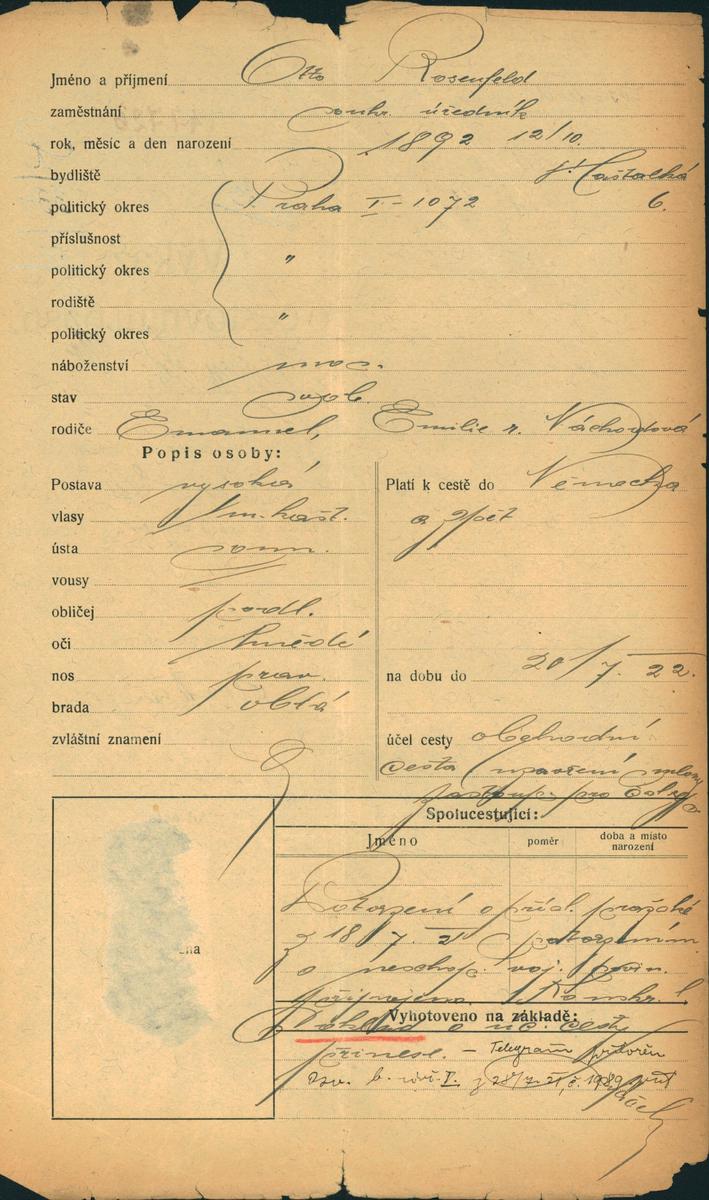 Jméno a příjmení Otto Rosenfeld
zaměstnání soukr. úředník
rok, měsíc a den narození 1892 12/10.
bydliště Haštalská
politický okres Praha I-1072 6.
příslušnost
politický okres "
rodiště
politický okres "
náboženství moj.
stav svob.
rodiče Emanuel, Emilie r. Náchodová
Popis osoby:
Postava vysoká
vlasy tm. kašt.
ústa soum.
vousy
obličej podl.
oči hnědé
nos prav.
brada oblá
zvláštní znamení
Platí k cestě do Německa
a zpět
na dobu do 20/7. 22.
účel cesty obchodní
cesta uzavření smlouvy
zastoup. pro
Spolucestující:
Jméno poměr doba a místo narození
Potvrzení o přísl. pražské
z 18/7. 21 s potvrzením
o neschop. voj.
připojeno.
Vyhotoveno na základě:
Doklad o úč. cesty
přinese. – Telegram přitvořen
28/7. 21, č.